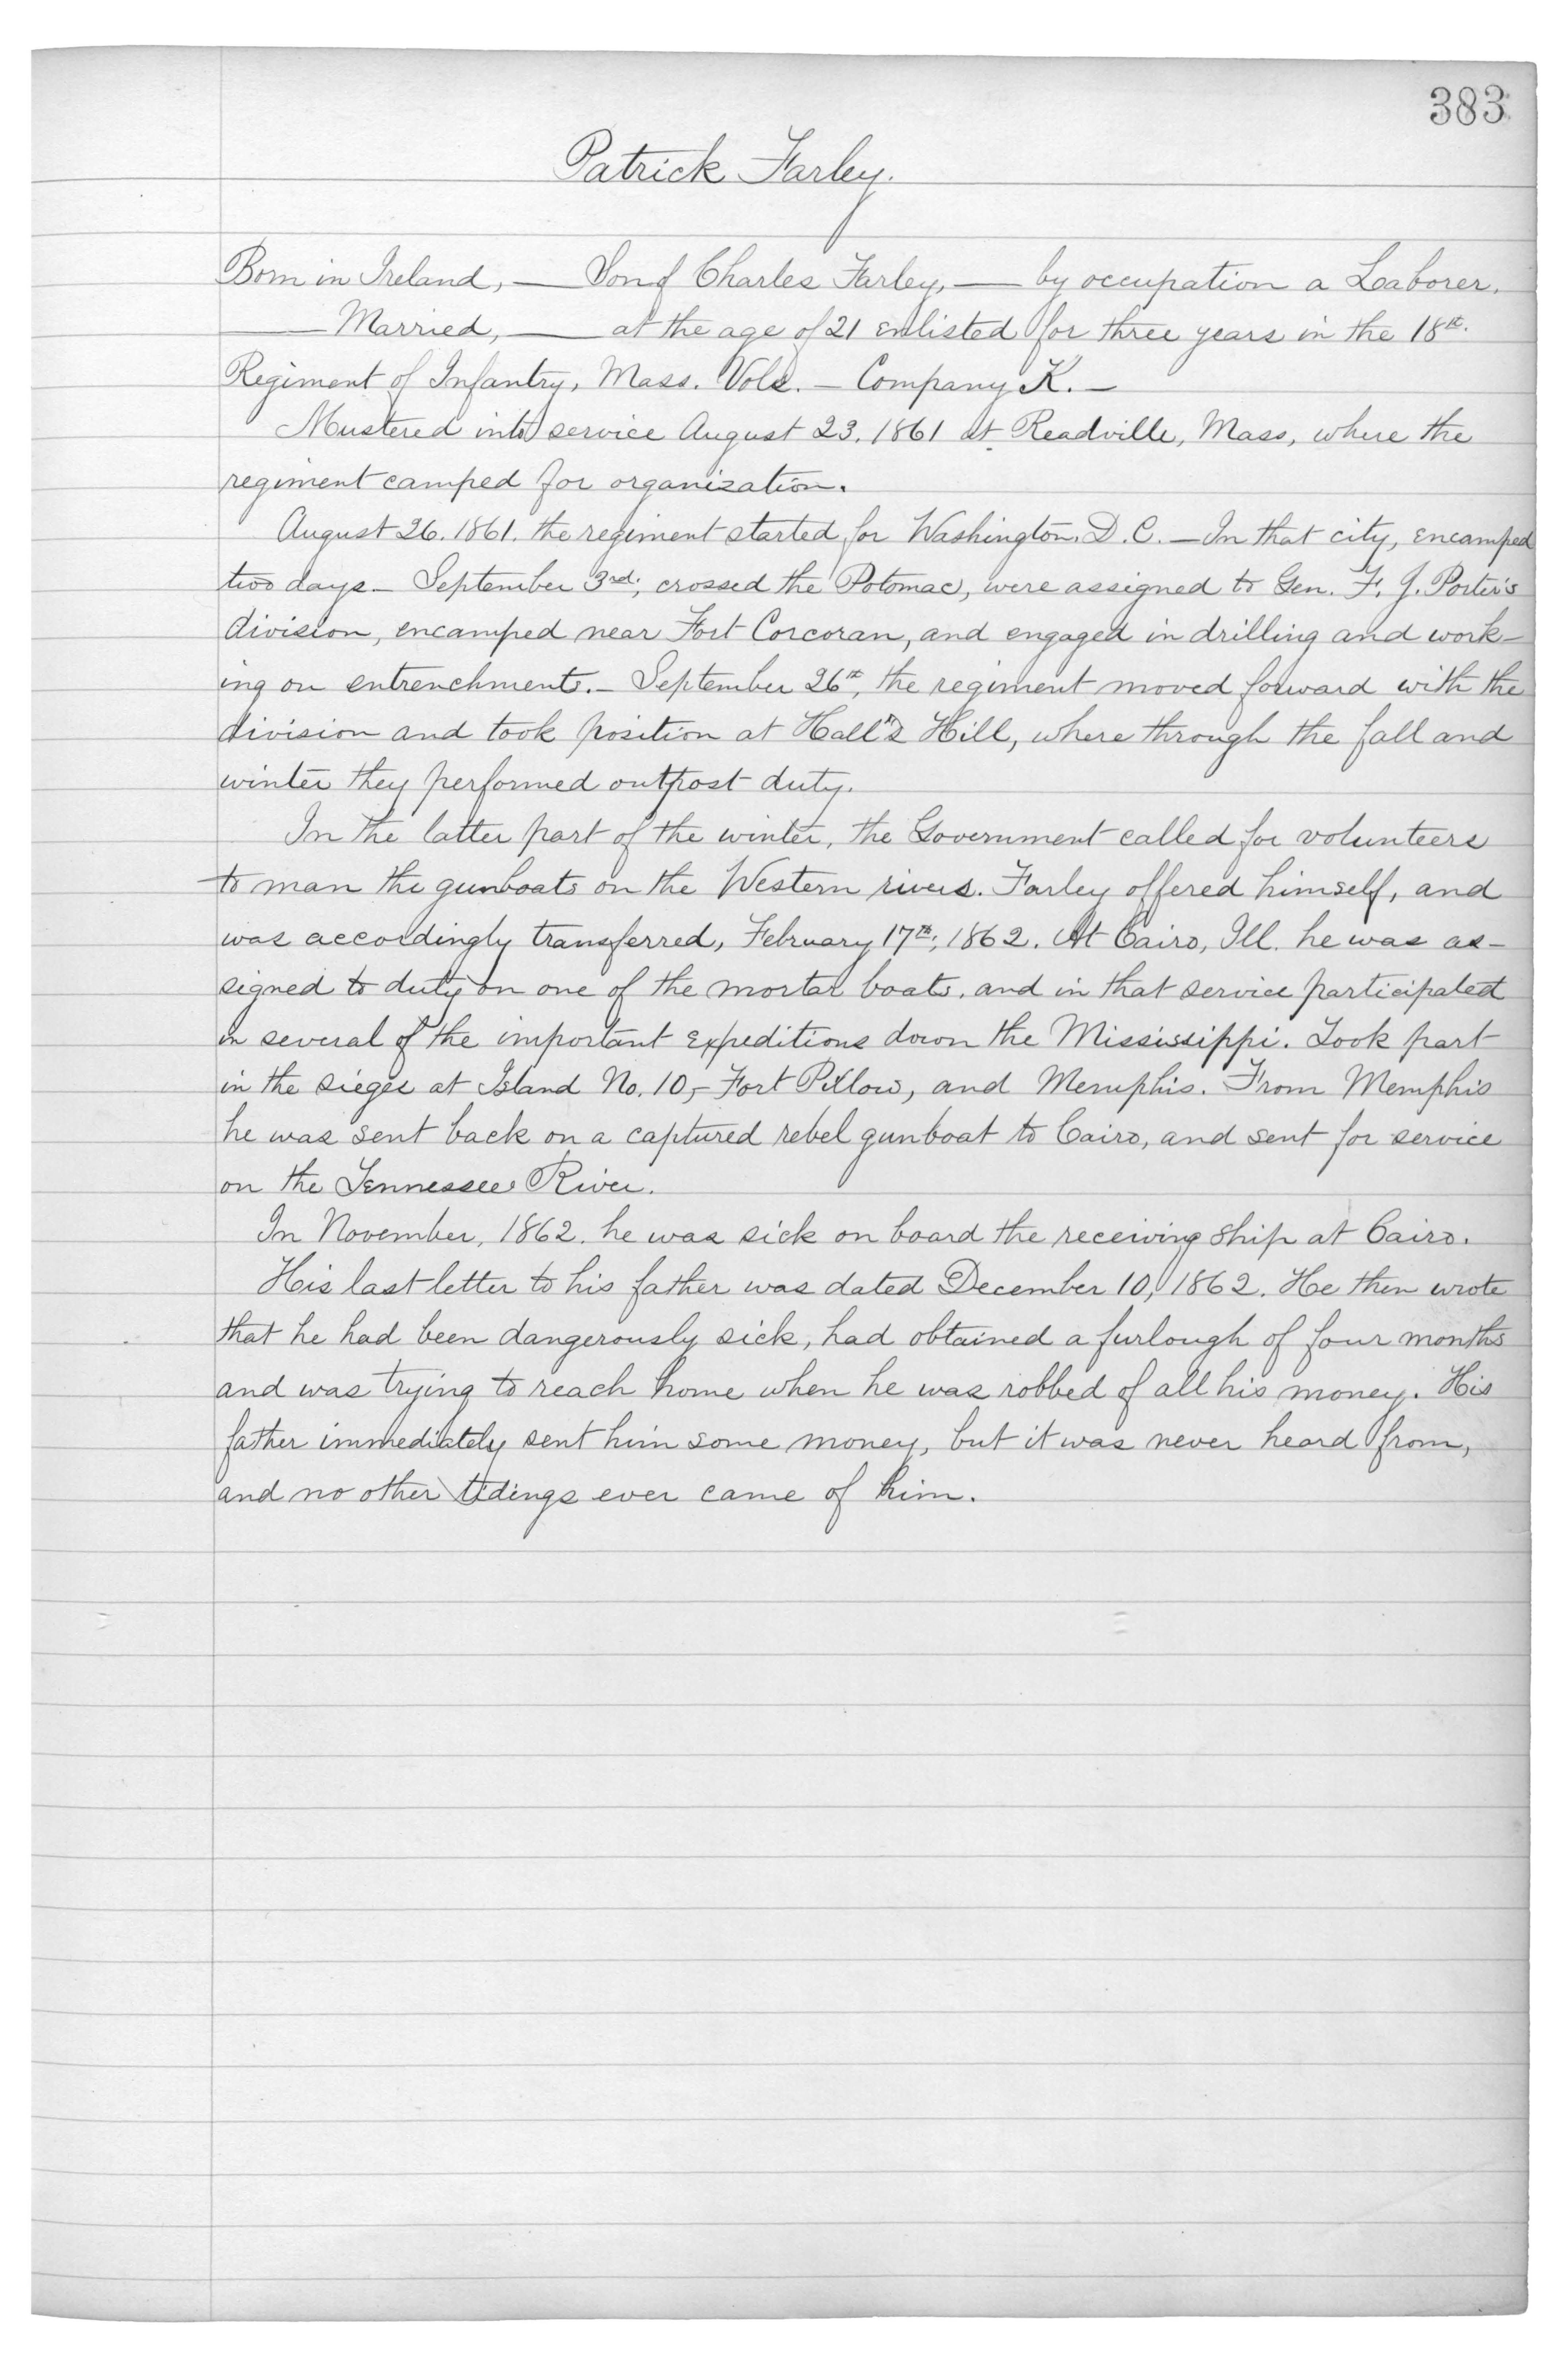 383
Patrick Farley.
Born in Ireland, — Son of Charles Farley, — by occupation a Laborer.
— Married, — at the age of 21 enlisted for three years in the 18th.
Regiment of Infantry, Mass. Vols. — Company K. —
Mustered into service August 23. 1861 at Readville, Mass, where the
regiment camped for organization.
August 26. 1861. the regiment started for Washington. D. C. — In that city, encamped
two days — September 3rd; crossed the Potomac, were assigned to Gen. F. J. Porter's
division, encamped near Fort Corcoran, and engaged in drilling and work-
ing on entrenchments. — September 26th, the regiment moved forward with the
division and took position at Hall's Hill, where through the fall and
winter they performed outpost duty.
In the latter part of the winter, the Government called for volunteers
to man the gunboats on the Western rivers. Farley offered himself, and
was accordingly transferred, February 17th; 1862. At Cairo, Ill. he was as-
signed to duty on one of the mortar boats, and in that service participated
in several of the important expeditions down the Mississippi. Took part
in the sieges at Island No. 10, – Fort Pillow, and Memphis. From Memphis
he was sent back on a captured rebel gunboat to Cairo, and sent for service
on the Tennessee River.
In November, 1862. he was sick on board the receiving ship at Cairo.
His last letter to his father was dated December 10, 1862. He then wrote
that he had been dangerously sick, had obtained a furlough of four months
and was trying to reach home when he was robbed of all his money. His
father immediately sent him some money, but it was never heard from,
and no other tidings ever came of him.